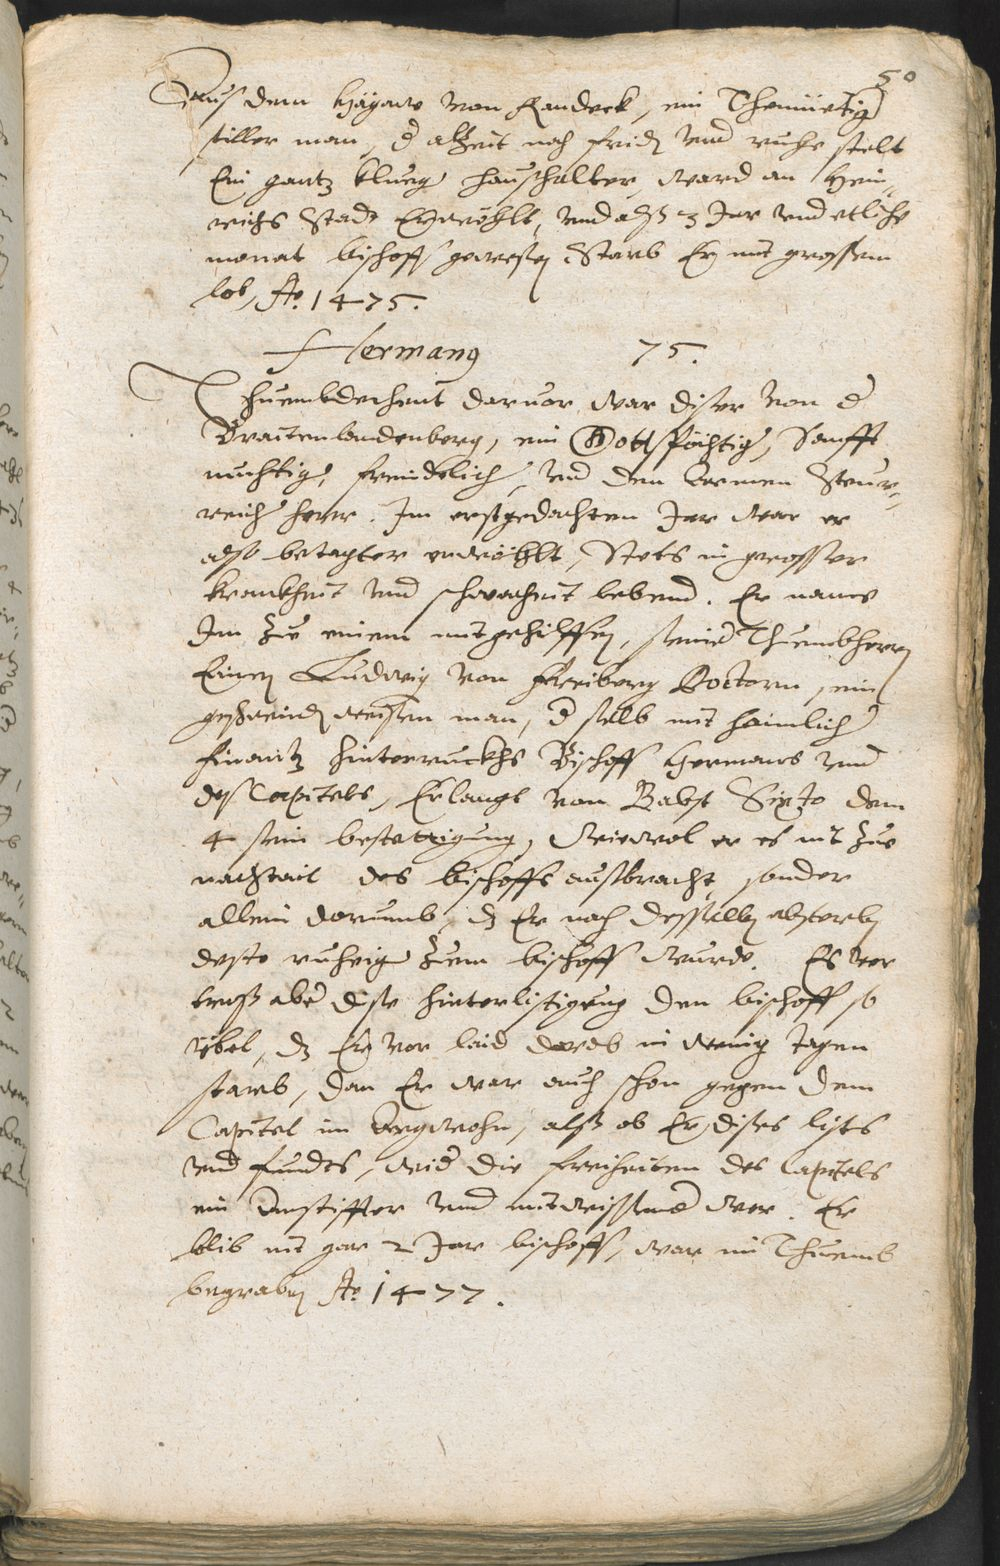 50
Auß dem Högaw von Randeck, ein Themüetig
stiller man, d alzeit nach friden vnd ruhe stelt
Ein gantz klueg haußhalter, ward an Hein„
richs Stadt Erwöhlt, vnd alß 3 Jar vnd etliche
monat bischoff gewesen Starb Er mit grossem
lob, Ao. 1475.
Hermanus 75.
Thuembdechent daruor, war diser von d
Braitenlandenberg, ein Gottsförchtig, Sanfft
muehtig, freindtlich, vnd den Armen Steur„
reich herr. Jm erstgedachten Jar war er
also betagter erwöhlt, Stets in grosser
kranckheit vnd schwacheit lebend. Er name
Jm zue einem mitgehilffen, seiner Thuembherren
Einen Ludwig von Freiberg Doctorn, ein
geschwinden weisen man, d selb mit haimlicher
finantz hinterruckhs Bischoff Hermans vnd
deß Capitels, Erlangt von Babst Sixto dem
4 sein bestettigung, Wiewol er es nit zue
nachtail des bischoffs außbracht, sonder
allein darumb, dz Er nach desselben absterben
desto ruhiger zum bischoff wurde. Es ver
droß aber dise hinterlistigung den bischoff so
übel, dz Er vor laid darob in wenig tagen
starb, dan Er war auch schon gegen dem
Capitel im Argwohn, alß ob Er dises lists
vnd fundts, wider die freiheiten des Capitels
ein Anstiffter vnd mitwissend wer. Er
blib nit gar 2 Jar bischoff, war im Thuemb
begraben Ao. 1477.